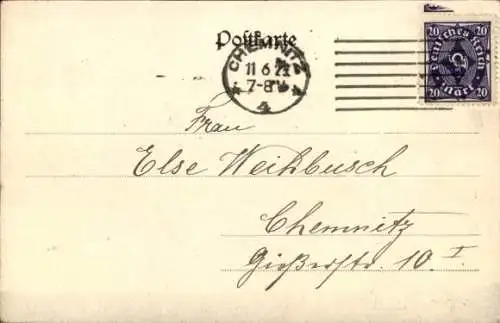 Postkarte
CHEMNITZ
11 6 23
7-8 V
4
20 Deutsches Reich 20
20 Mark 20
Frau
Else Weihbusch
Chemnitz
Gießerstr. 10 I.